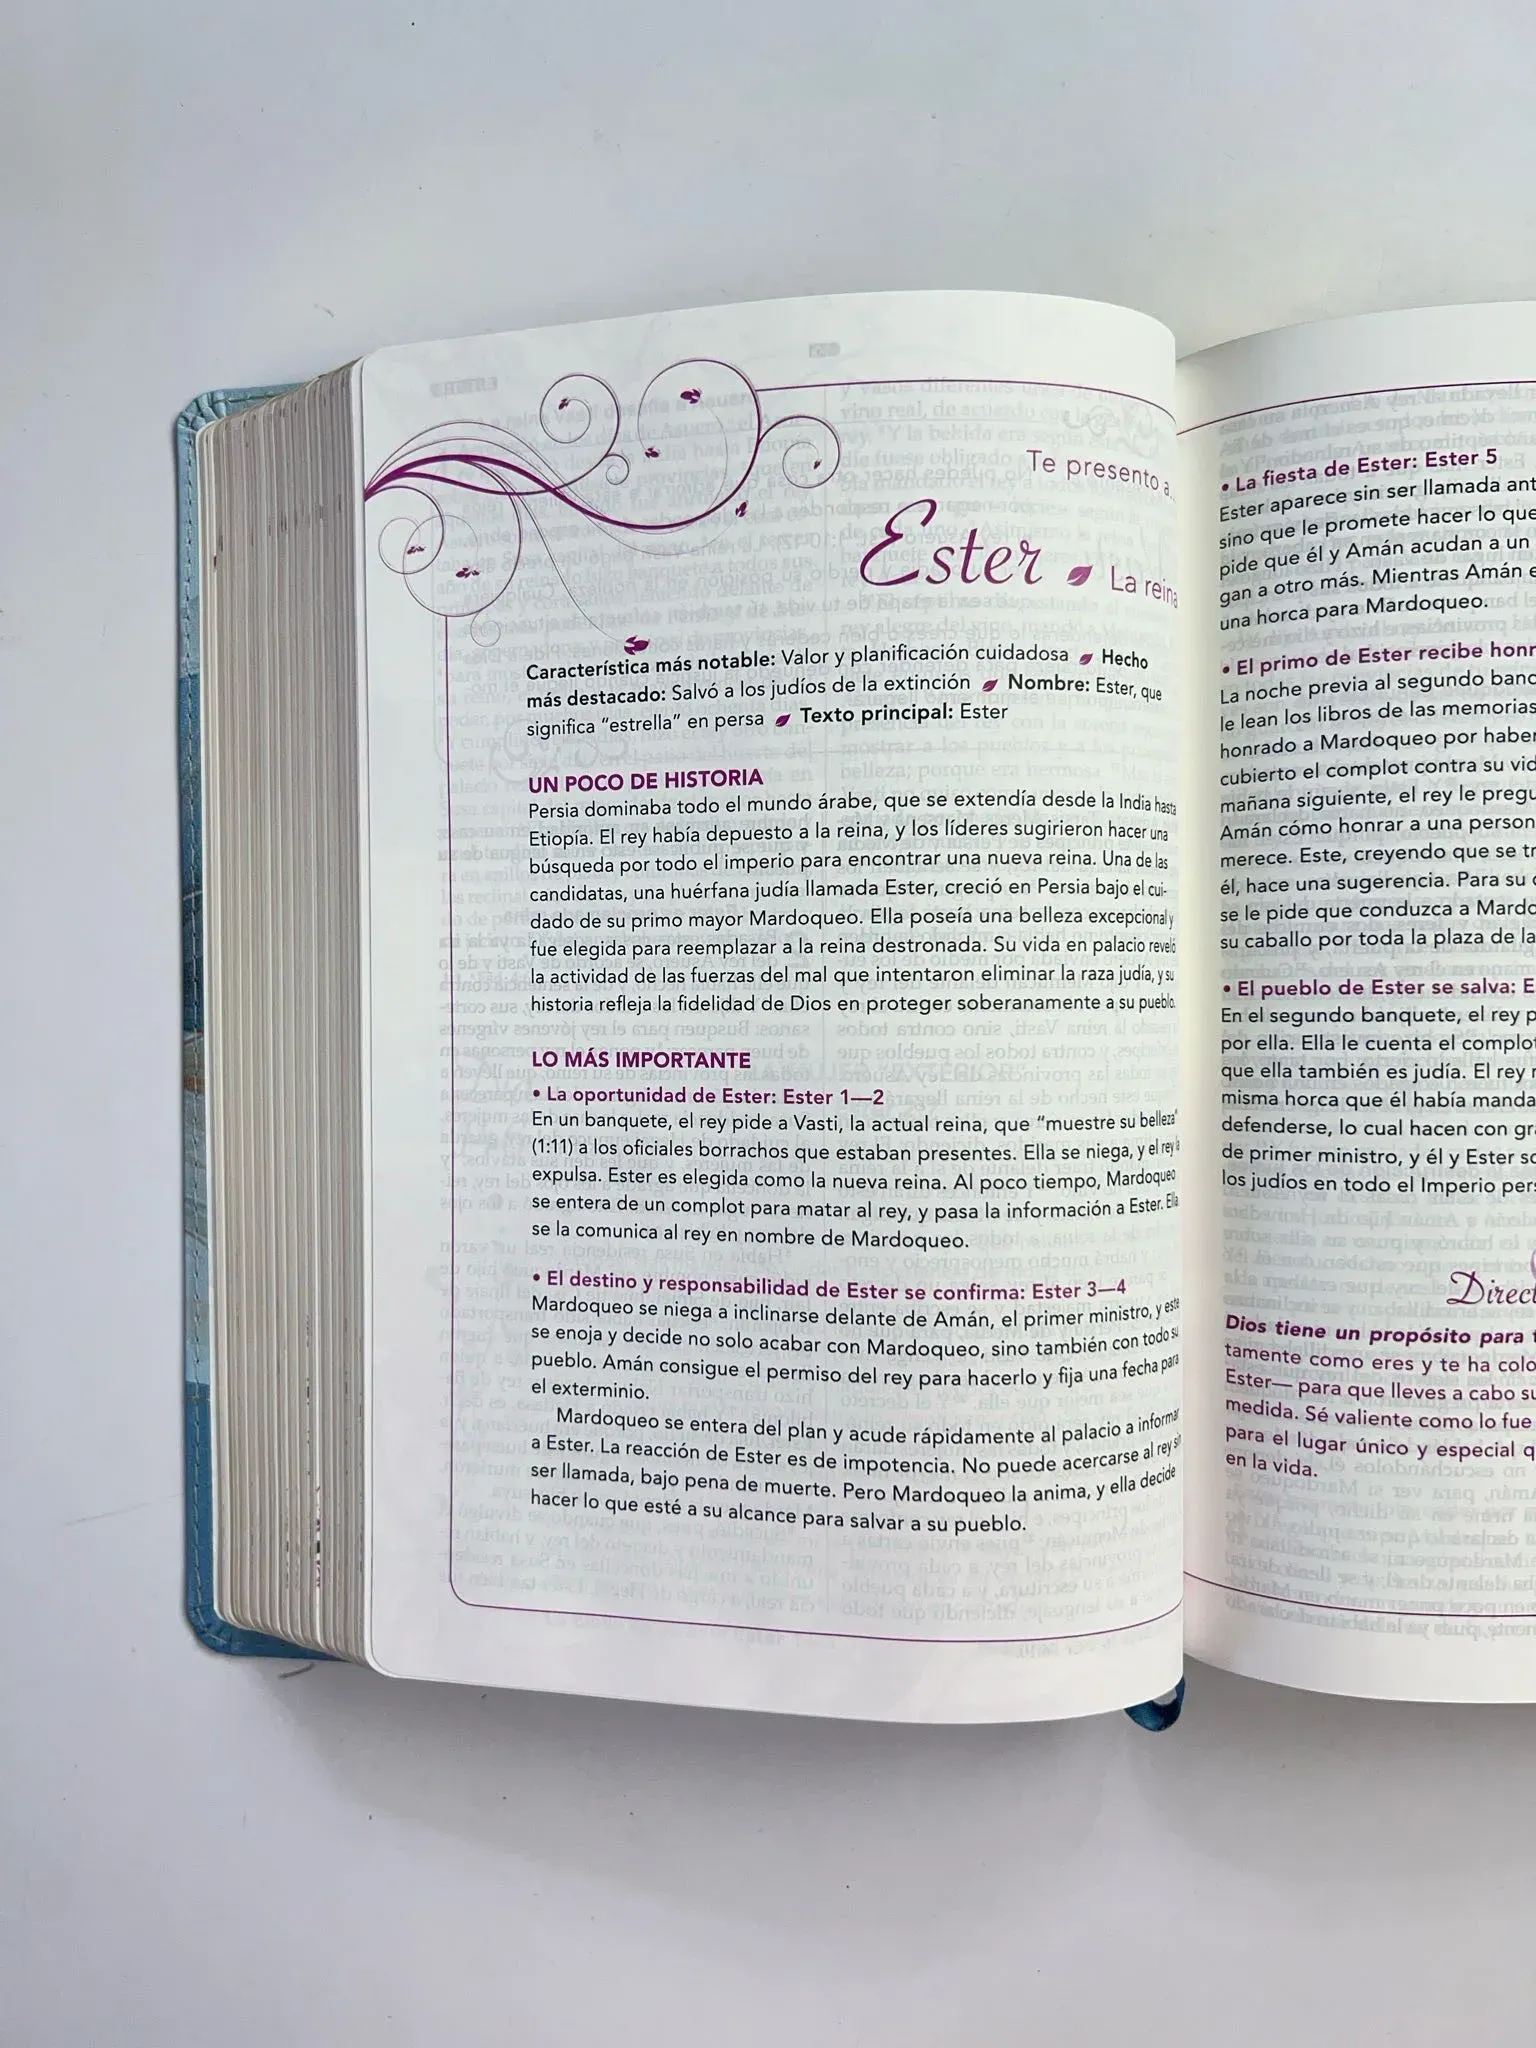 Te presento a...
Ester La reina
Característica más notable: Valor y planificación cuidadosa Hecho
más destacado: Salvó a los judíos de la extinción Nombre: Ester, que
significa “estrella” en persa Texto principal: Ester
UN POCO DE HISTORIA
Persia dominaba todo el mundo árabe, que se extendía desde la India hasta
Etiopía. El rey había depuesto a la reina, y los líderes sugirieron hacer una
búsqueda por todo el imperio para encontrar una nueva reina. Una de las
candidatas, una huérfana judía llamada Ester, creció en Persia bajo el cui-
dado de su primo mayor Mardoqueo. Ella poseía una belleza excepcional y
fue elegida para reemplazar a la reina destronada. Su vida en palacio reveló
la actividad de las fuerzas del mal que intentaron eliminar la raza judía, y su
historia refleja la fidelidad de Dios en proteger soberanamente a su pueblo.
LO MÁS IMPORTANTE
• La oportunidad de Ester: Ester 1—2
En un banquete, el rey pide a Vasti, la actual reina, que “muestre su belleza”
(1:11) a los oficiales borrachos que estaban presentes. Ella se niega, y el rey la
expulsa. Ester es elegida como la nueva reina. Al poco tiempo, Mardoqueo
se entera de un complot para matar al rey, y pasa la información a Ester. Ella
se la comunica al rey en nombre de Mardoqueo.
• El destino y responsabilidad de Ester se confirma: Ester 3—4
Mardoqueo se niega a inclinarse delante de Amán, el primer ministro, y este
se enoja y decide no solo acabar con Mardoqueo, sino también con todo su
pueblo. Amán consigue el permiso del rey para hacerlo y fija una fecha para
el exterminio.
Mardoqueo se entera del plan y acude rápidamente al palacio a informar
a Ester. La reacción de Ester es de impotencia. No puede acercarse al rey sin
ser llamada, bajo pena de muerte. Pero Mardoqueo la anima, y ella decide
hacer lo que esté a su alcance para salvar a su pueblo.
• La fiesta de Ester: Ester 5
Ester aparece sin ser llamada ant
sino que le promete hacer lo que
pide que él y Amán acudan a un
gan a otro más. Mientras Amán e
una horca para Mardoqueo.
• El primo de Ester recibe honr
La noche previa al segundo banq
le lean los libros de las memorias
honrado a Mardoqueo por haber
cubierto el complot contra su vid
mañana siguiente, el rey le pregu
Amán cómo honrar a una person
merece. Este, creyendo que se tr
él, hace una sugerencia. Para su
se le pide que conduzca a Mardo
su caballo por toda la plaza de la
• El pueblo de Ester se salva: E
En el segundo banquete, el rey p
por ella. Ella le cuenta el complot
que ella también es judía. El rey
misma horca que él había manda
defenderse, lo cual hacen con gra
de primer ministro, y él y Ester
los judíos en todo el Imperio pers
Direct
Dios tiene un propósito para
tamente como eres y te ha colo
Ester— para que lleves a cabo su
medida. Sé valiente como lo fue
para el lugar único y especial q
en la vida.